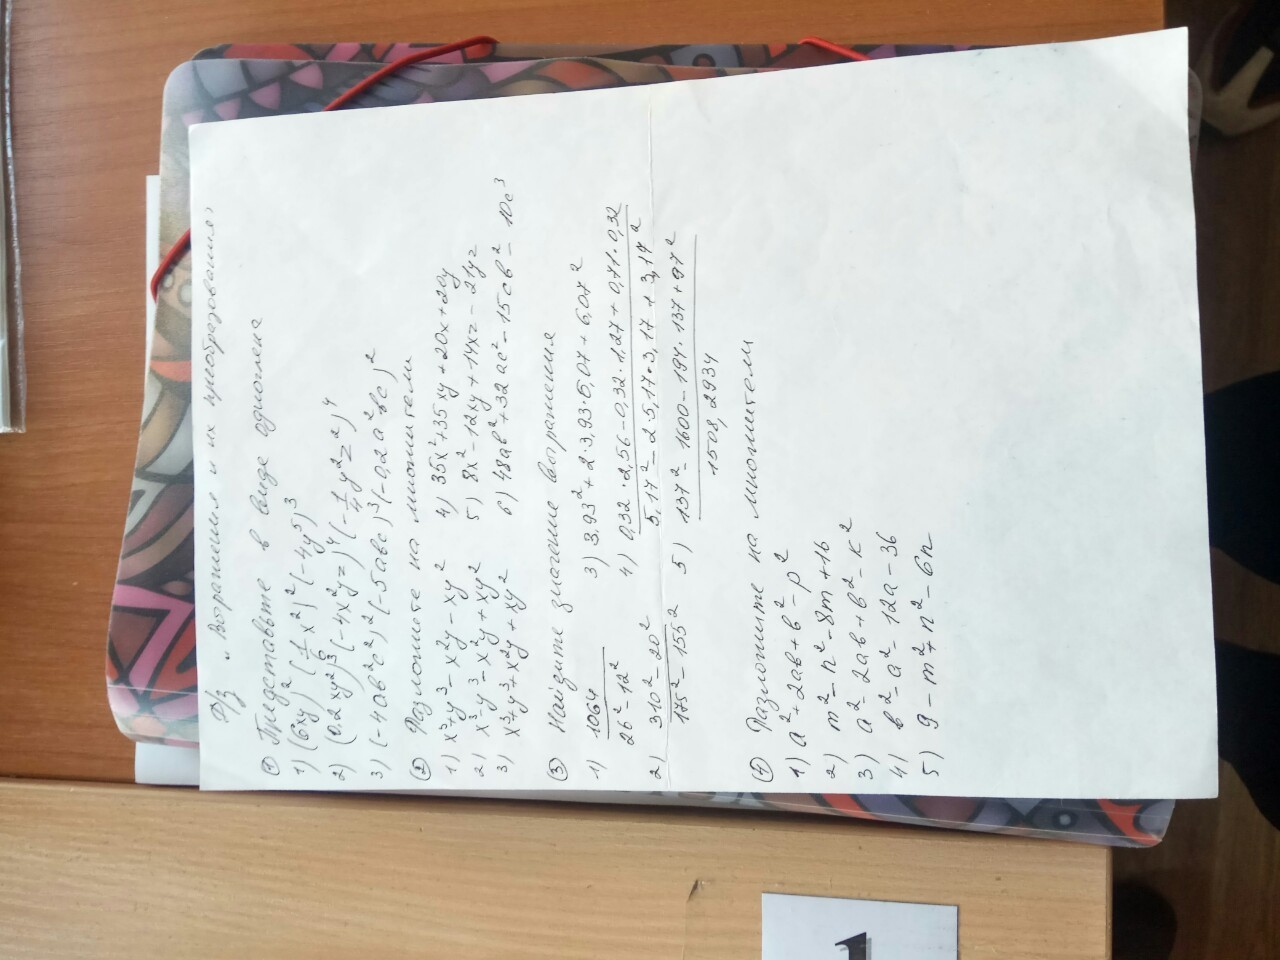 Д/з „Выражения и их преобразования»
① Представьте в виде одночлена
1) (6xy)² (1/6 x²)² (-4y⁵)³
2) (0,2xy²)³ (-4x²yz)⁴ (-1/4 y²z²)⁴
3) (-4ab²c²)² (-5abc)³ (-0,2a²bc)²
② Разложите на множители
1) x³+y³-x²y-xy² 4) 35x²+35xy+20x+20y
2) x³-y³-x²y+xy² 5) 8x²-12xy+14xz-21yz
3) x³+y³+x²y+xy² 6) 48ab²+32ac²-15cb²-10c³
③ Найдите значение выражения
1) 1064 / 26²-12² 3) 3,93²+2·3,93·6,07+6,07²
2) 310²-20² / 175²-155² 4) 0,32·2,56-0,32·1,27+0,71·0,32 / 5,17²-2·5,17·3,17+3,17²
5) 137²-1600-194·137+97² / 1508,2934
④ Разложите на множители
1) a²+2ab+b²-p²
2) m²-n²-8m+16
3) a²-2ab+b²-k²
4) b²-a²-12a-36
5) 9-m²+n²-6n
1